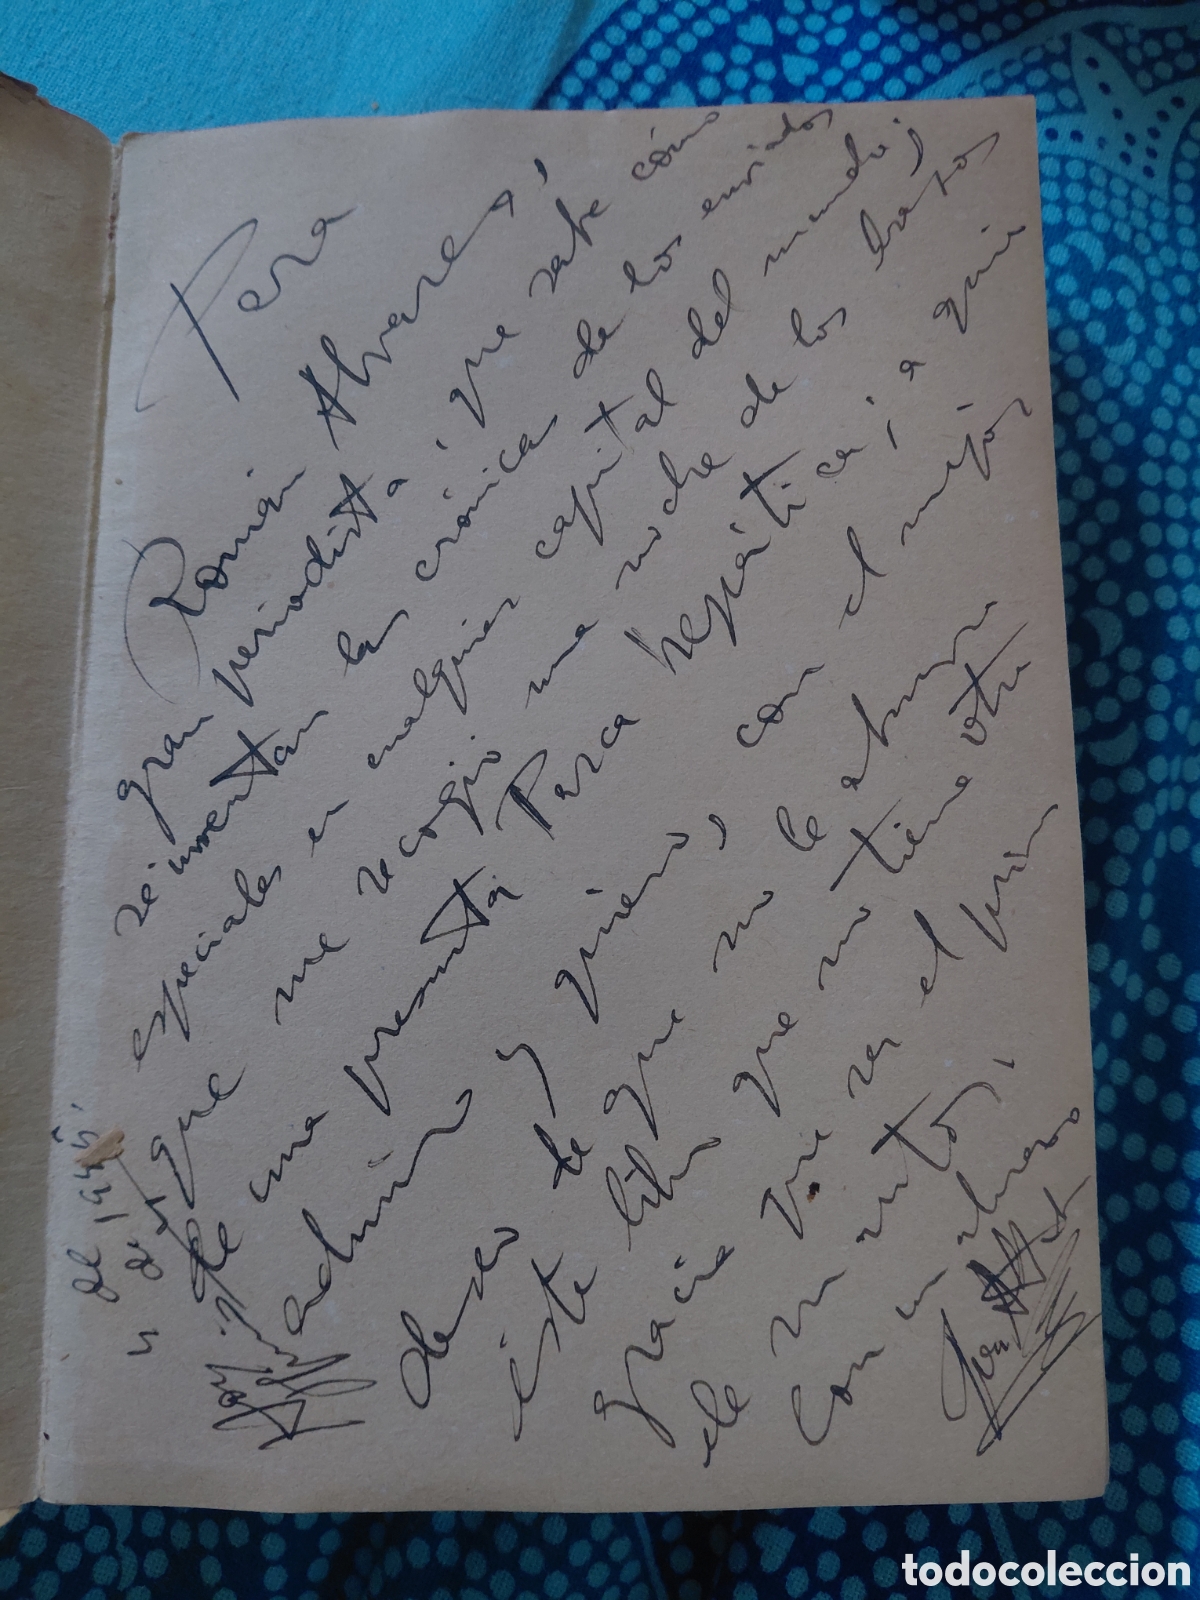 Para
Román Alvarez,
gran periodista, que sabe cómo
se inventan las crónicas de los enviados
especiales en cualquier capital del mundo;
y que me recogió una noche de los brazos
de una presunta Parca hepática; a quien
admiro y quiero, con el mejor
deseo de que no le aburra
este libro que no tiene otra
gracia que ser el prim
ele mutos,
Con un abrazo
de 1945.
todocoleccion